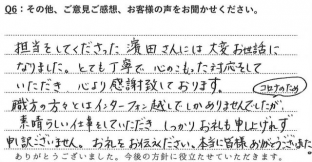 Q6：その他、ご意見ご感想、お客様の声をお聞かせください。
担当をしてくださった 濱田さんには 大変お世話に
なりました。とても丁寧で 心のこもった対応をして
いただき 心より感謝致しております。
コロナのため
職方の方々とはインターフォン越しでしかありませんでしたが、
素晴らしい仕事をしていただき しっかりお礼も申し上げれず
申し訳ございません。お礼をお伝えください。本当に皆様ありがうございました
ありがとうございました。今後の方針に役立たせていただきます。